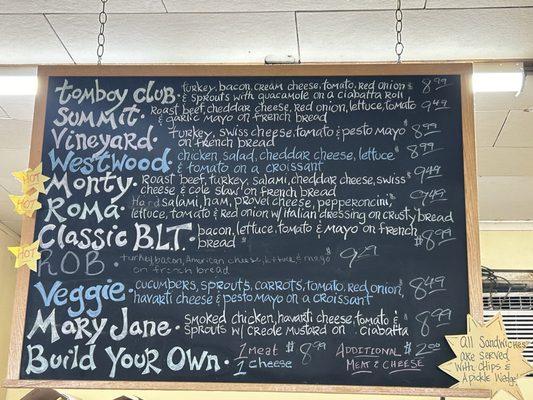 Tomboy Club. turkey, bacon, cream cheese, tomato, red onion $8.99
& sprouts with guacamole on a ciabatta roll
Summit. Roast beef, cheddar cheese, red onion, lettuce, tomato 9.49
& garlic mayo on french bread
Vineyard. Turkey, swiss cheese, tomato & pesto mayo $8.99
on french bread
Westwood. chicken salad, cheddar cheese, lettuce $8.99
& tomato on a croissant
HOT Monty. Roast beef, turkey, salami, cheddar cheese, swiss $9.49
cheese & cole slaw on french bread
HOT Roma. Hard salami, ham, provel cheese, pepperoncini, $9.49
lettuce, tomato & red onion w/ Italian dressing on crusty bread
Classic BLT. bacon, lettuce, tomato & mayo on french $8.99
bread
HOT ROB. turkey, bacon, American cheese, lettuce & mayo 9.29
on french bread
Veggie. cucumbers, sprouts, carrots, tomato, red onion, $8.49
havarti cheese & pesto mayo on a croissant
Mary Jane. smoked chicken, havarti cheese, tomato & $8.99
sprouts w/ creole mustard on ciabatta
Build Your Own. 1 meat $8.99 Additional $2.00
1 cheese Meat & Cheese
All Sandwiches
are served
with chips &
a pickle wedge